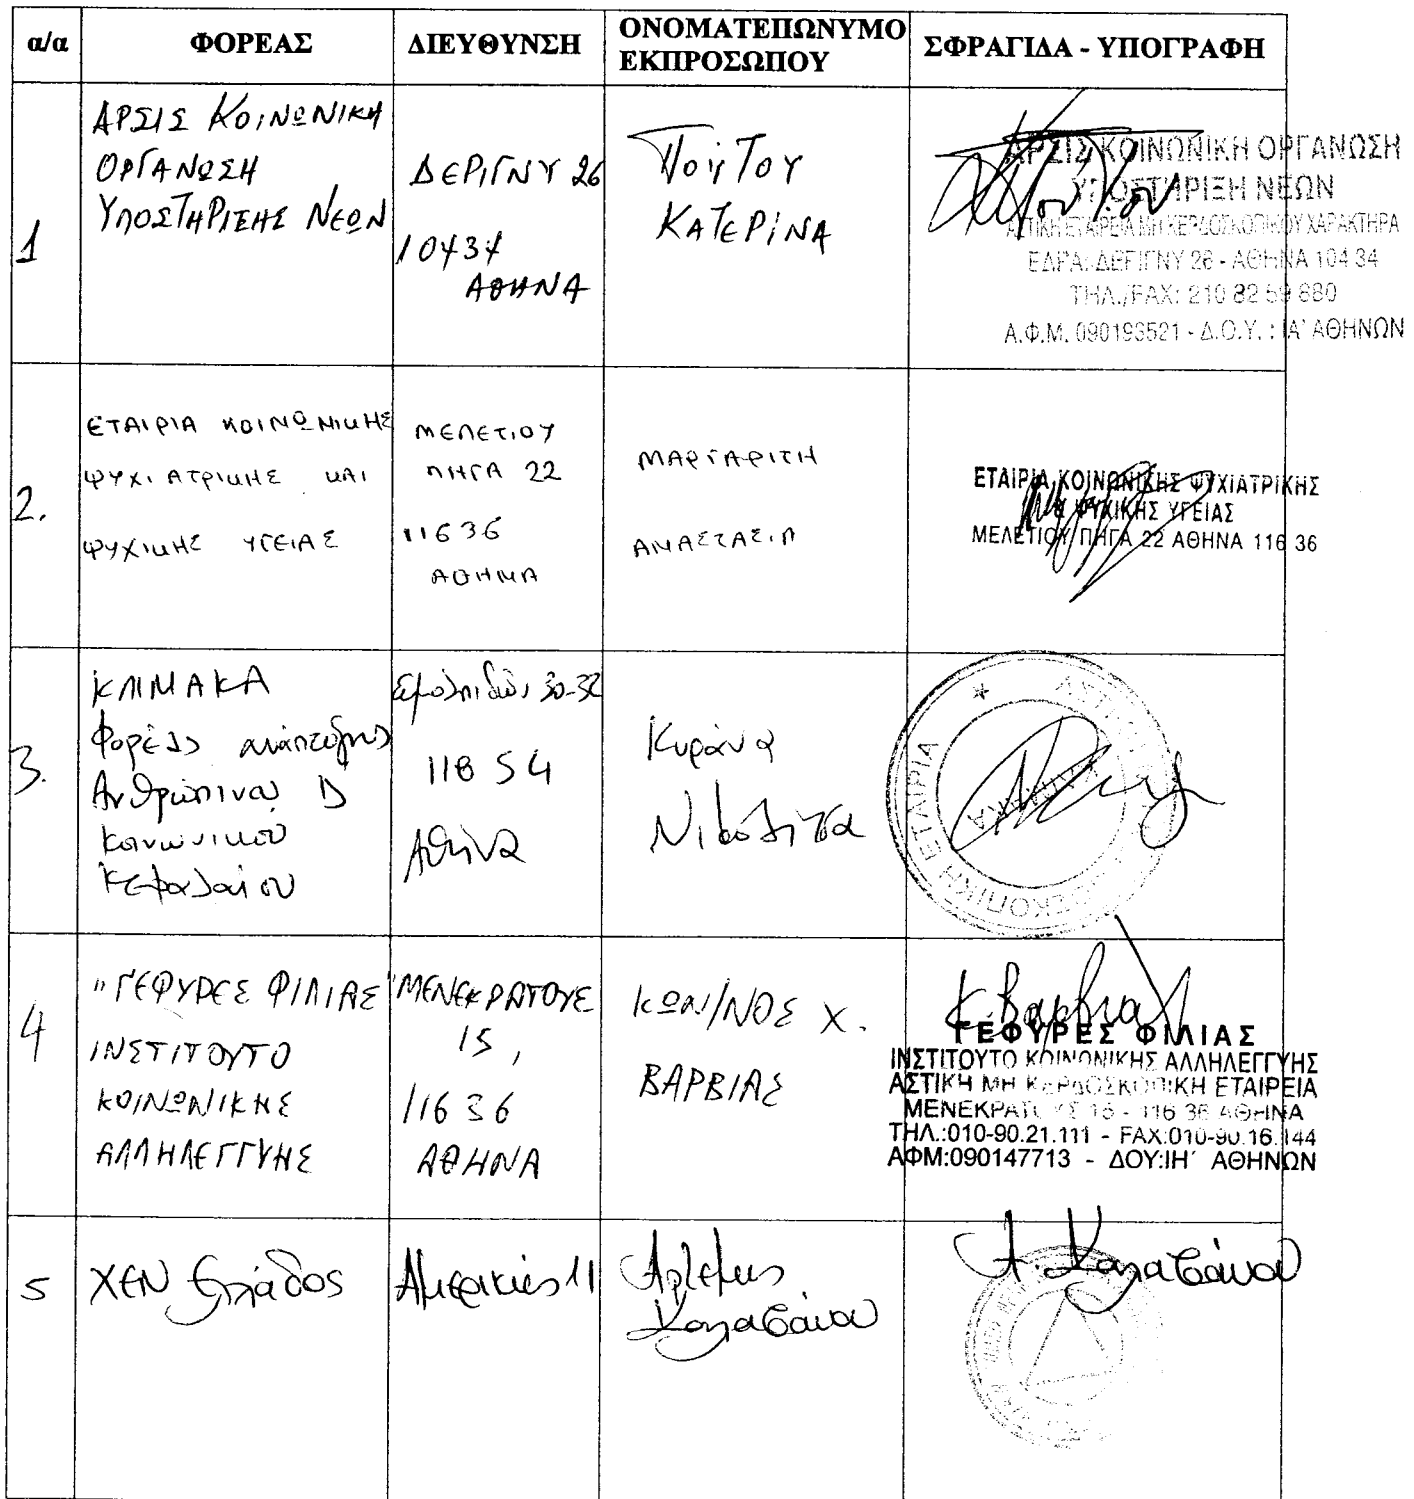 α/α
ΦΟΡΕΑΣ
ΔΙΕΥΘΥΝΣΗ
ΟΝΟΜΑΤΕΠΩΝΥΜΟ
ΕΚΠΡΟΣΩΠΟΥ
ΣΦΡΑΓΙΔΑ - ΥΠΟΓΡΑΦΗ
1
ΑΡΣΙΣ ΚΟΙΝΩΝΙΚΗ
ΟΡΓΑΝΩΣΗ
ΥΠΟΣΤΗΡΙΞΗΣ ΝΕΩΝ
ΔΕΡΙΓΝΥ 26
10434
ΑΘΗΝΑ
Πούτου
ΚΑΤΕΡΙΝΑ
ΑΡΣΙΣ ΚΟΙΝΩΝΙΚΗ ΟΡΓΑΝΩΣΗ
ΥΠΟΣΤΗΡΙΞΗ ΝΕΩΝ
ΑΣΤΙΚΗ ΕΤΑΙΡΕΙΑ ΜΗ ΚΕΡΔΟΣΚΟΠΙΚΟΥ ΧΑΡΑΚΤΗΡΑ
ΕΔΡΑ: ΔΕΡΙΓΝΥ 26 - ΑΘΗΝΑ 104 34
ΤΗΛ./FAX: 210 82 59 880
Α.Φ.Μ. 090193521 - Δ.Ο.Υ. : ΙΑ' ΑΘΗΝΩΝ
2.
ΕΤΑΙΡΙΑ ΚΟΙΝΩΝΙΚΗΣ
ΨΥΧΙΑΤΡΙΚΗΣ ΚΑΙ
ΨΥΧΙΚΗΣ ΥΓΕΙΑΣ
ΜΕΛΕΤΙΟΥ
ΠΗΓΑ 22
11636
ΑΘΗΝΑ
ΜΑΡΓΑΡΙΤΗ
ΑΝΑΣΤΑΣΙΑ
ΕΤΑΙΡΙΑ ΚΟΙΝΩΝΙΚΗΣ ΨΥΧΙΑΤΡΙΚΗΣ
& ΨΥΧΙΚΗΣ ΥΓΕΙΑΣ
ΜΕΛΕΤΙΟΥ ΠΗΓΑ 22 ΑΘΗΝΑ 116 36
3.
ΚΛΙΜΑΚΑ
Φορέας ανάπτυξης
Ανθρώπινου &
Κοινωνικού
Κεφαλαίου
Ευμολπιδών 30-32
11854
Αθήνα
Κυράνα
Νικολίτσα
ΕΤΑΙΡΙΑ
4
"ΓΕΦΥΡΕΣ ΦΙΛΙΑΣ"
ΙΝΣΤΙΤΟΥΤΟ
ΚΟΙΝΩΝΙΚΗΣ
ΑΛΛΗΛΕΓΓΥΗΣ
ΜΕΝΕΚΡΑΤΟΥΣ
15,
11636
ΑΘΗΝΑ
ΚΩΝ/ΝΟΣ Χ.
ΒΑΡΒΙΑΣ
Κ. Βαρβια
ΓΕΦΥΡΕΣ ΦΙΛΙΑΣ
ΙΝΣΤΙΤΟΥΤΟ ΚΟΙΝΩΝΙΚΗΣ ΑΛΛΗΛΕΓΓΥΗΣ
ΑΣΤΙΚΗ ΜΗ ΚΕΡΔΟΣΚΟΠΙΚΗ ΕΤΑΙΡΕΙΑ
ΜΕΝΕΚΡΑΤΟΥΣ 15 - 116 36 ΑΘΗΝΑ
ΤΗΛ.:010-90.21.111 - FAX:010-90.16.144
ΑΦΜ:090147713 - ΔΟΥ:ΙΗ΄ ΑΘΗΝΩΝ
5
ΧΕΝ Ελλάδος
Αμερικής 11
Άρτεμις